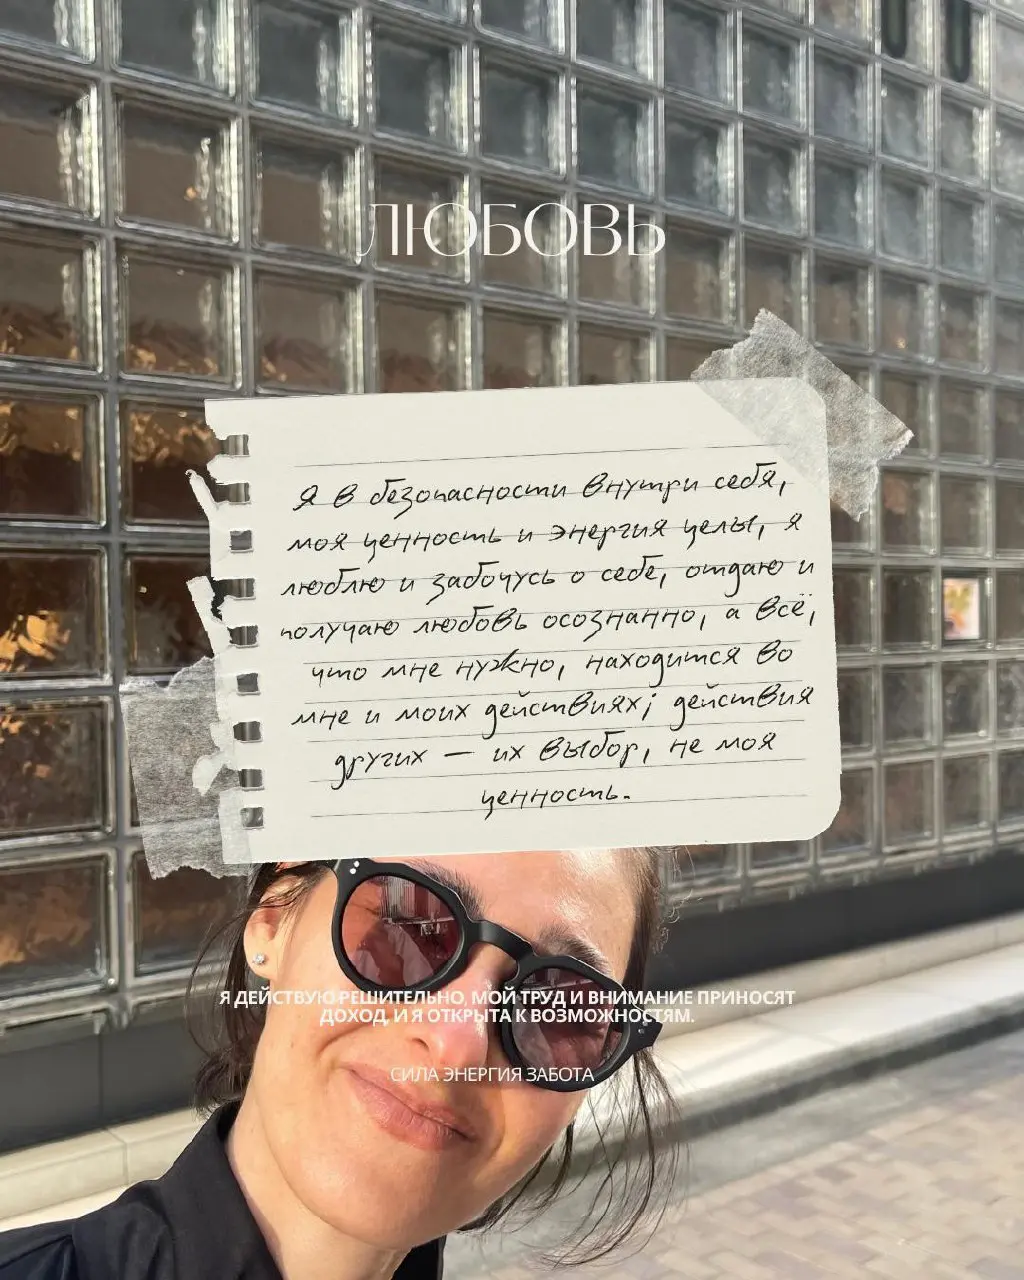 ЛЮБОВЬ
Я в безопасности внутри себя,
моя ценность и энергия целы, я
люблю и забочусь о себе, отдаю и
получаю любовь осознанно, а всё,
что мне нужно, находится во
мне и моих действиях; действия
других — их выбор, не моя
ценность.
Я ДЕЙСТВУЮ РЕШИТЕЛЬНО, МОЙ ТРУД И ВНИМАНИЕ ПРИНОСЯТ
ДОХОД, И Я ОТКРЫТА К ВОЗМОЖНОСТЯМ.
СИЛА ЭНЕРГИЯ ЗАБОТА